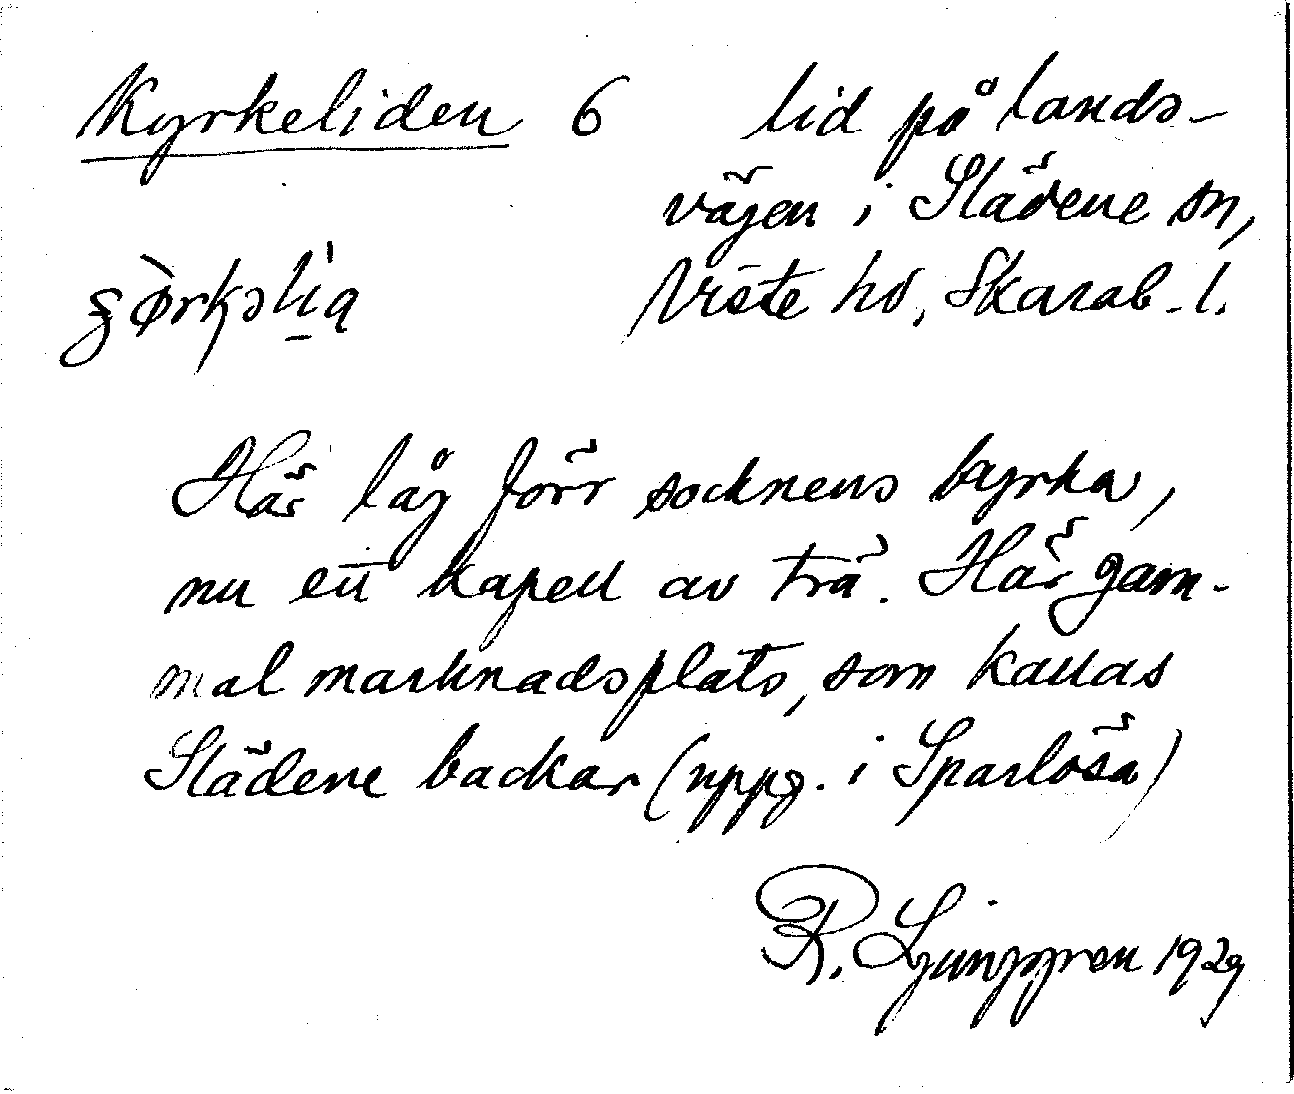 Kyrkeliden 6 lid på lands-
vägen i Slädene sn,
Viste hd, Skarab. l.
Här låg förr socknens kyrka,
nu ett kapell av trä. Här gam-
mal marknadsplats, som kallas
Slädene backar (uppg. i Sparlösa)
R. Ljunggren 1929